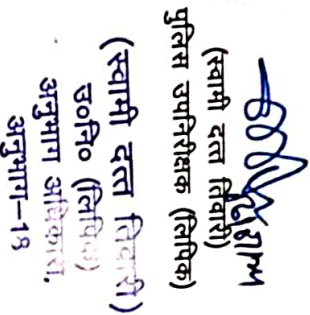 (स्वामी दत्त तिवारी)
पुलिस उपनिरीक्षक (लिपिक)
(स्वामी दत्त तिवारी)
उ०नि० (लिपिक)
अनुभाग अधिकारी,
अनुभाग-18